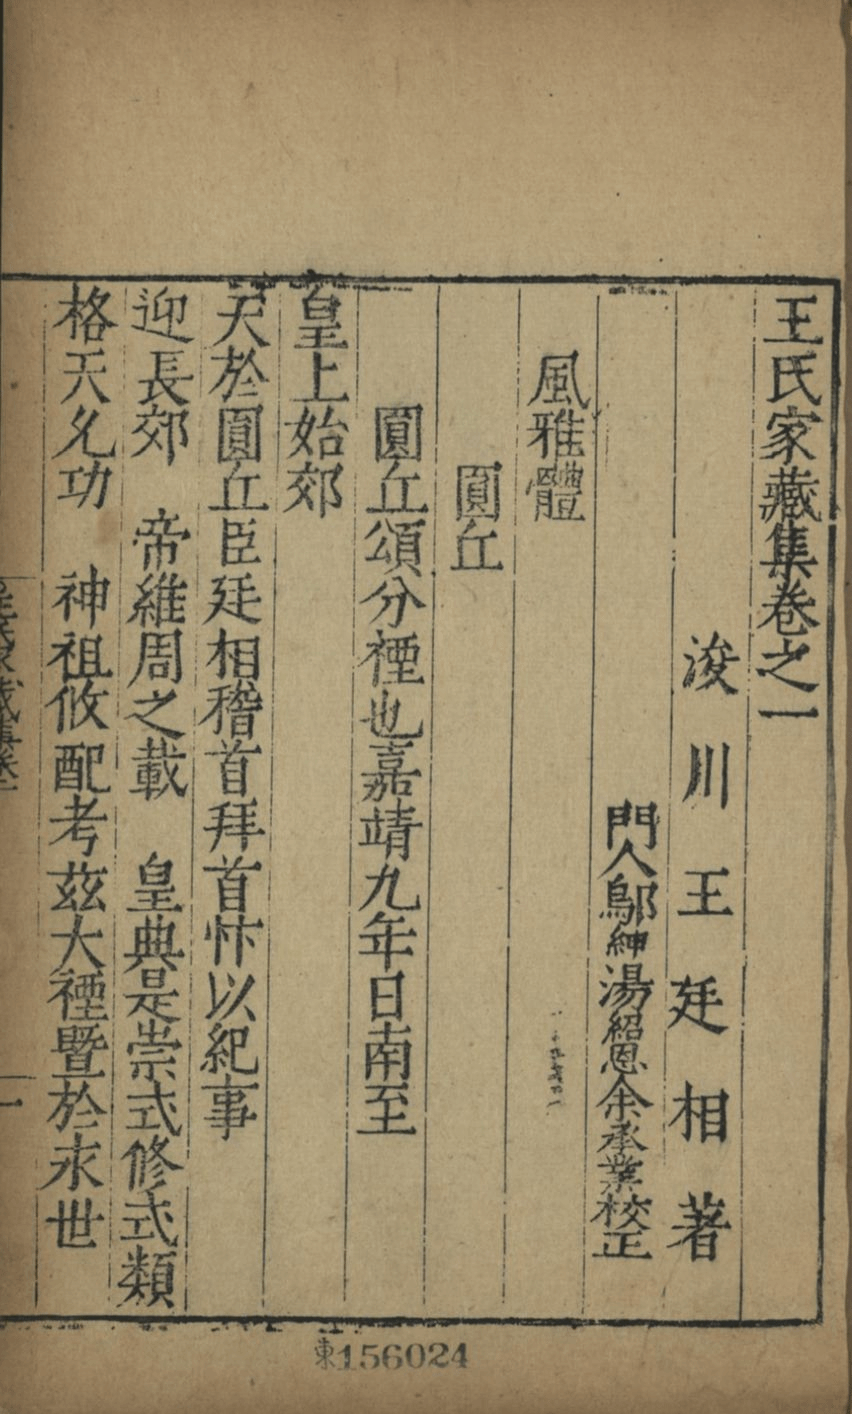 王氏家藏集卷之一
浚川王廷相著
門人鄔紳湯紹恩余承業校正
風雅體
圓丘
圓丘頌分禋也嘉靖九年日南至
皇上始郊
天於圓丘臣廷相稽首拜首忭以紀事
迎長郊 帝維周之載 皇典是崇式修式類
格天允功 神祖攸配考玆大禋曁於永世
一
東156024